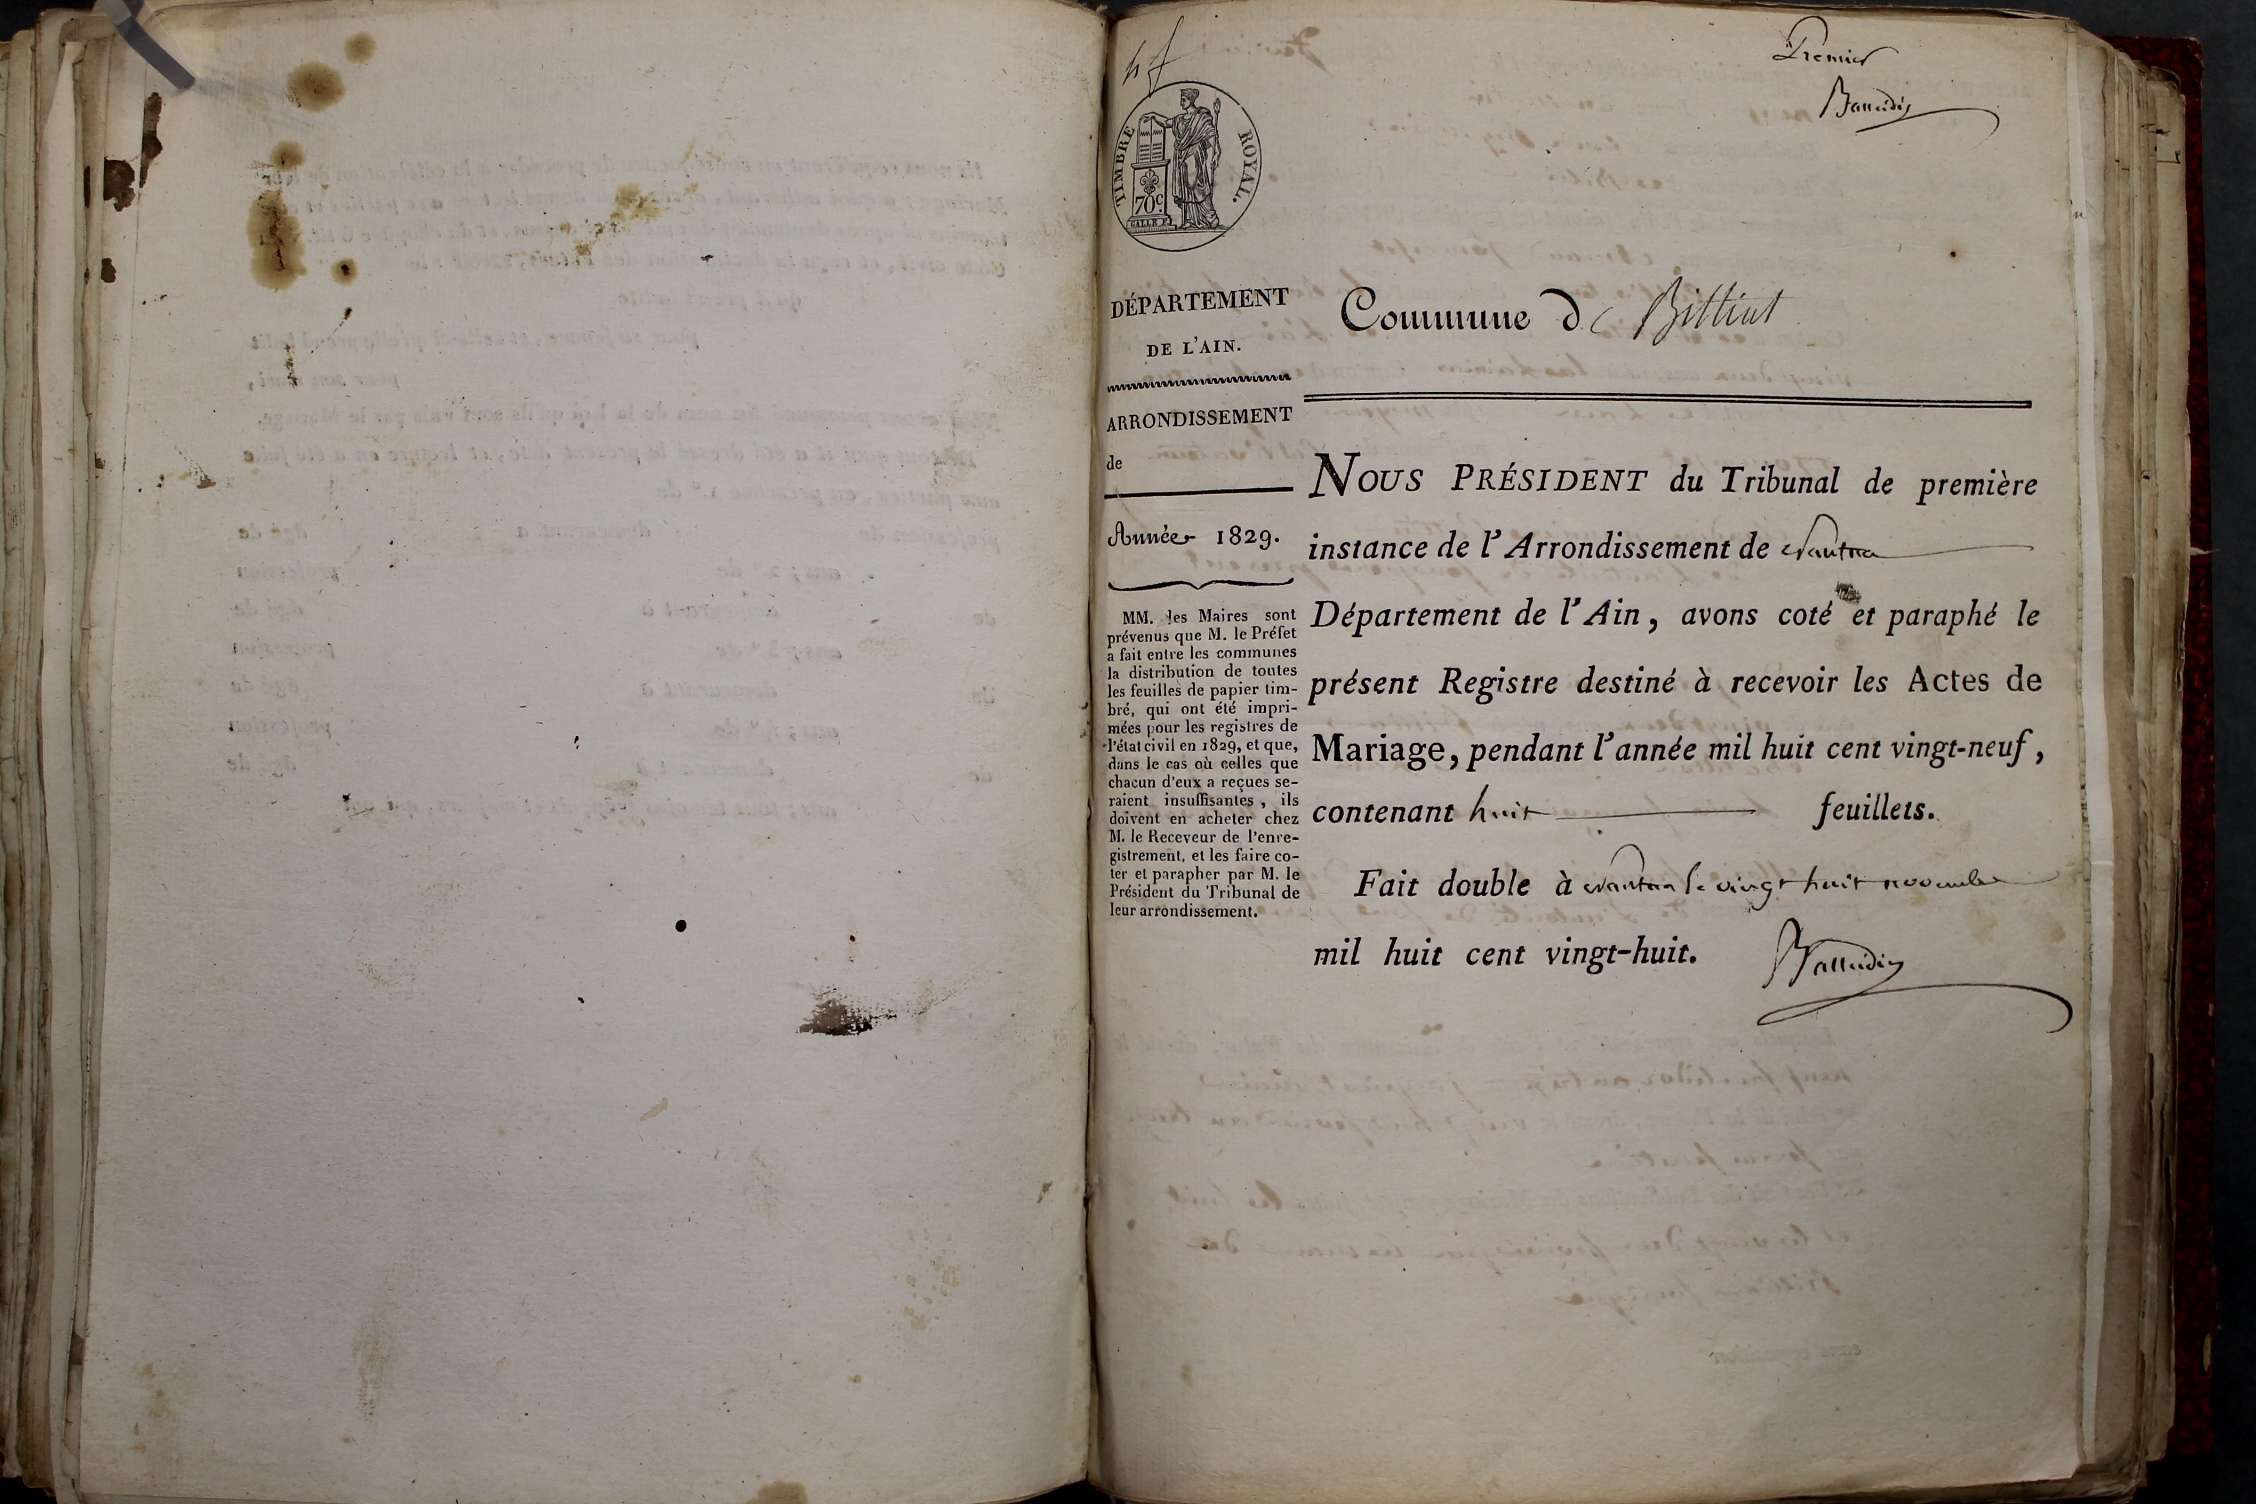 Premier
TIMBRE ROYAL.
70c.
DÉPARTEMENT
DE L'AIN.
ARRONDISSEMENT
de
Année 1829.
MM. les Maires sont
prévenus que M. le Préfet
a fait entre les communes
la distribution de toutes
les feuilles de papier tim-
bré, qui ont été impri-
mées pour les registres de
l'état civil en 1829, et que,
dans le cas où celles que
chacun d'eux a reçues se-
raient insuffisantes, ils
doivent en acheter chez
M. le Receveur de l'enre-
gistrement, et les faire co-
ter et parapher par M. le
Président du Tribunal de
leur arrondissement.
Commune de Billiat
NOUS PRÉSIDENT du Tribunal de première
instance de l'Arrondissement de Nantua
Département de l'Ain, avons coté et paraphé le
présent Registre destiné à recevoir les Actes de
Mariage, pendant l'année mil huit cent vingt-neuf,
contenant huit feuillets.
Fait double à Nantua le vingt huit novembre
mil huit cent vingt-huit.